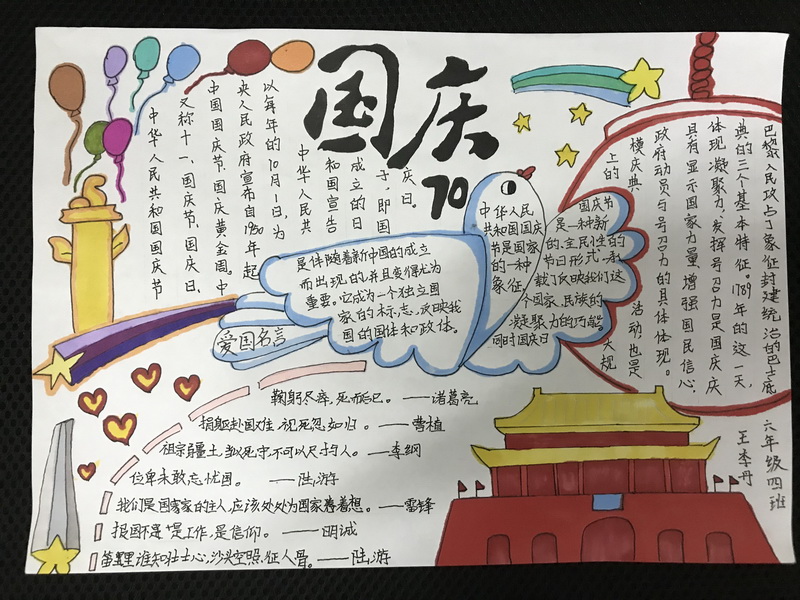 国庆
70
中华人民共和国国庆节
又称十一、国庆节、国庆日、
中国国庆节、国庆黄金周。中
央人民政府宣布自1950年起
以每年的10月1日,为
中华人民共
和国宣告
成立的日
子,即国
庆日。
是伴随着新中国的成立
而出现的,并且变得尤为
重要。它成为一个独立国
家的标志,反映我
国的国体和政体。
中华人民
共和国国庆
节是国家
的一种
象征,
国庆节
是一种新
的、全民性的
节日形式,承
载了反映我们这
个国家、民族的
凝聚力的功能。
同时国庆日
上的大规
模庆典活动,也是
政府动员与号召力的具体体现。
具有显示国家力量,增强国民信心,
体现凝聚力,发挥号召力是国庆庆
典的三个基本特征。1789年的这一天,
巴黎人民攻占了象征封建统治的巴士底
爱国名言
鞠躬尽瘁,死而后已。——诸葛亮
捐躯赴国难,视死忽如归。——曹植
祖宗疆土,当以死守,不可以尺寸与人。——李纲
位卑未敢忘忧国。——陆游
我们是国家的主人,应该处处为国家着想。——雷锋
报国不是 是工作,是信仰。——明诚
笛里谁知壮士心,沙头空照征人骨。——陆游
六年级四班
王李丹